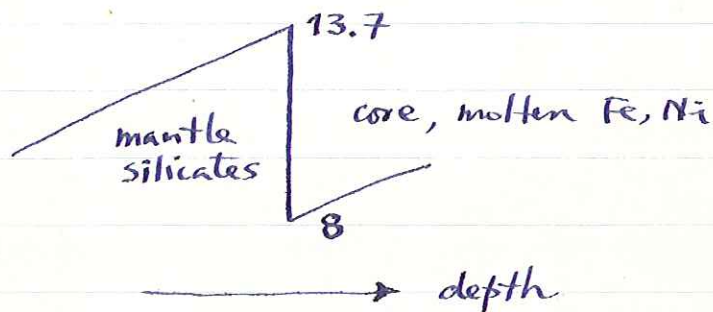 13.7
mantle
silicates
core, molten Fe, Ni
8
depth